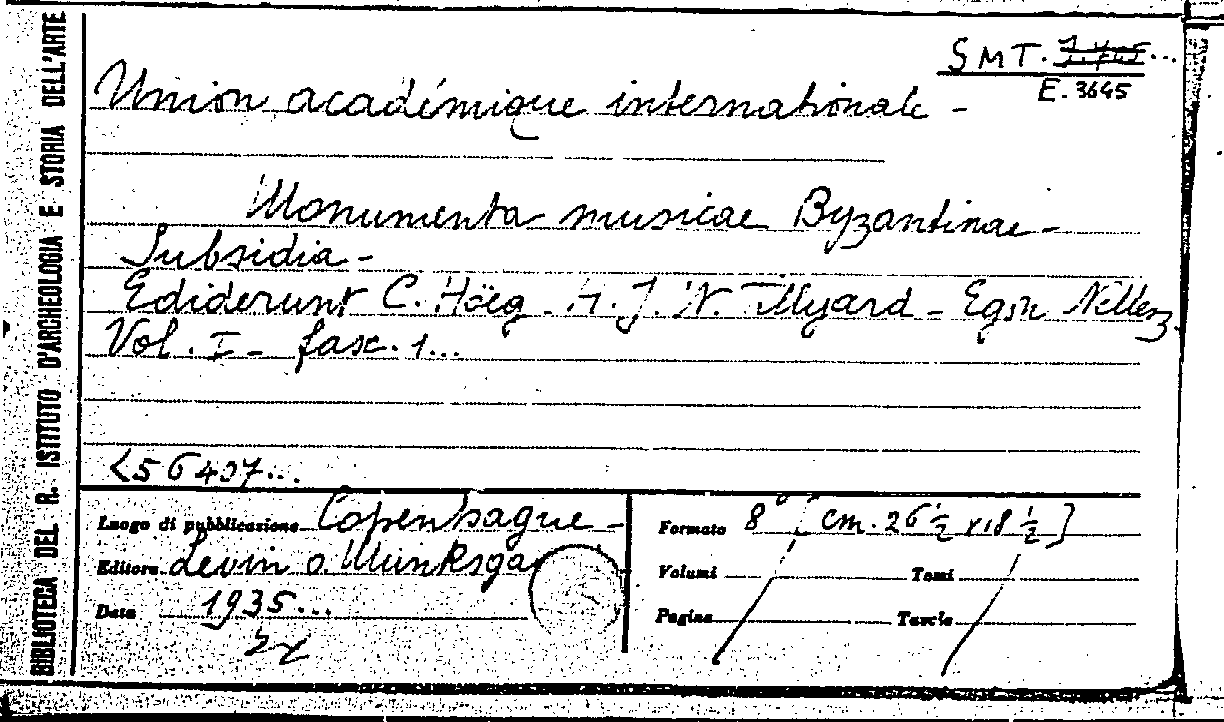 BIBLIOTECA DEL R. ISTITUTO D'ARCHEOLOGIA E STORIA DELL'ARTE
SMT.
E. 3645
Union académique internationale -
Monumenta musicae Byzantinae -
Subsidia -
Ediderunt C. Höeg - H. J. W. Tillyard - Egon Wellesz
Vol. I - fasc. 1...
<56407...
Luogo di pubblicazione Copenhague -
Editore Levin o. Munksga
Data 1935...
Formato 8° [cm. 26 ½ x 18 ½]
Volumi Tomi
Pagine Tavole